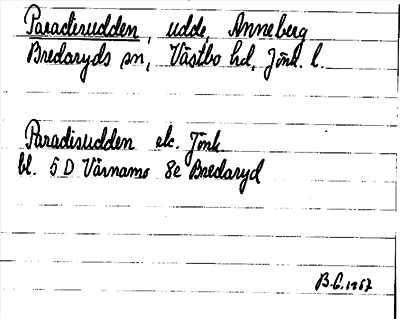 Paradisudden, udde, Anneberg
Bredaryds sn, Västbo hd, Jönk. l.
Paradisudden ek. Jönk
bl. 5 D Värnamo 8e Bredaryd
B.G. 1967